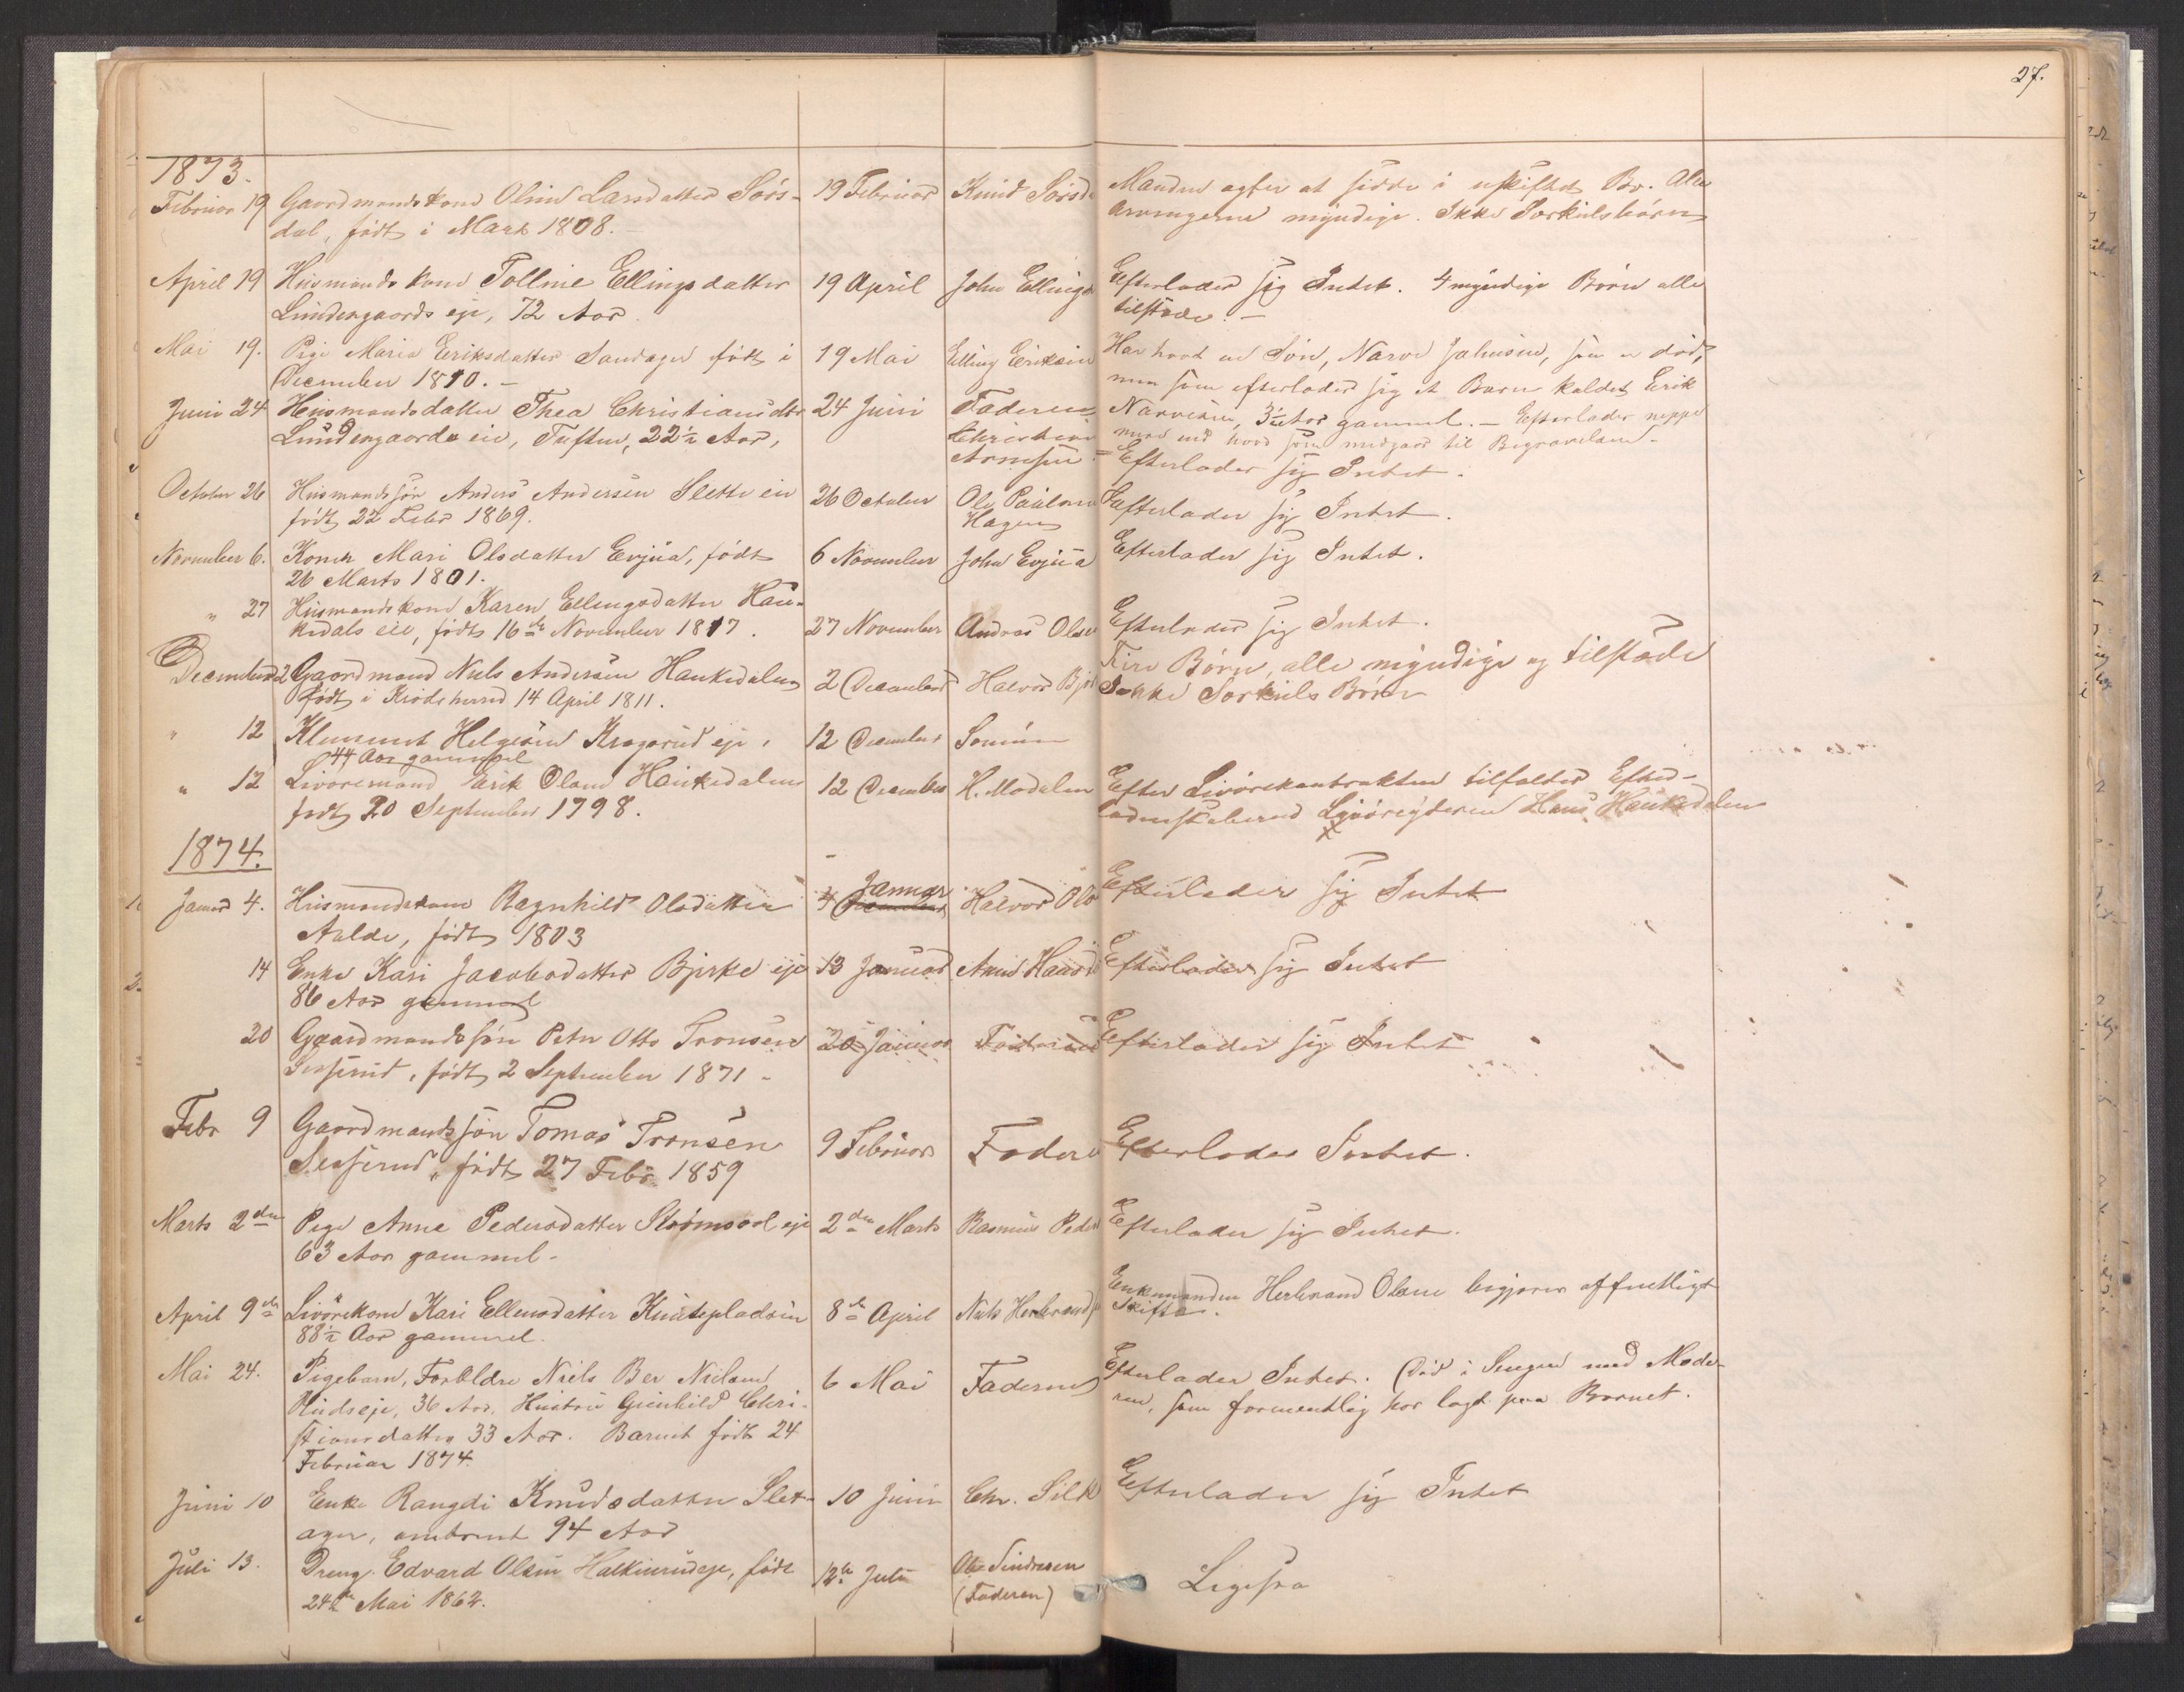 27.
1873.
Februar 19 Gaardmandskone Oline Larsdatter Sørs- 19 Februar Knud Sørsd Manden agter at sidde i uskiftet Bo. Alle
dal, født i Marts 1808. Arvingerne myndige. Ikke Særkulsbørn
April 19 Husmandskone Tolline Ellingsdatter 19 April John Ellings Efterlader sig Intet. 4 myndige Børn alle
Lindergaards eje, 72 Aar. tilstæde. –
Mai 19. Pige Maria Eriksdatter Sandager født i 19 Mai Elling Eriksen Har havt en Søn, Narve Johnsen, som er død,
December 1810. – men som efterlader sig et Barn kaldet Erik
Juni 24 Husmandsdatter Thea Christiansdtr 24 Juni Faderen Narvesen, 3½ Aar gammel. – Efterlader neppe
Lindergaards eie, Tuften, 22½ Aar, Christian mere end hvad som medgaar til Begravelsen.
Arnesen – Efterlader sig Intet.
October 26 Husmandssøn Anders Andersen Slette eie 26 October Ole Paulsen Efterlader sig Intet.
født 22 Febr 1869. Hagen
November 6. Kone Mari Olsdatter Evjua, født 6 November John Evjua Efterlader sig Intet.
26 Marts 1801.
" 27 Husmandskone Karen Ellingsdatter Hau- 27 November Andreas Olsen Efterlader sig Intet.
kedals eie, født 16de November 1817.
December 2 Gaardmand Niels Andersen Haukedalen 2 December Halvor Bjør Fire Børn, alle myndige og tilstæde
født i Krødsherred 14 April 1811. Ikke Særkuls Børn
" 12 Klemmet Helgesen Kragerud eje, 12 December
44 Aar gammel
" 12 Livøremand Erik Olsen Haukedalen 12 December H. Modalen Efter Livørekontrakten tilfalder Efter-
født 20 September 1798. ladenskaberne Livøreyderen Hans Haukedalen
1874.
Januar 4. Husmandskone Ragnhild Olsdatter 4 December Januar Halvor Ols Efterlader sig Intet
født 1803
14 Enke Kari Jacobsdatter Bjerke eje 13 Januar Efterlader sig Intet
86 Aar gammel
20 Gaardmandssøn Peter Otto Tronsen 20 Januar Faderen Efterlader sig Intet
født 2 September 1871 –
Febr 9 Gaardmandssøn Tomas Tronsen 9 Februar Faderen Efterlader Intet.
født 27 Febr 1859
Marts 2den Pige Anne Pedersdatter Strømsod eje 2den Marts Rasmus Peder Efterlader sig Intet.
63 Aar gammel –
April 9de Livørekone Kari Ellensdatter Knutepladsen 8de April Niels Herbrands Enkemanden Herbrand Olsen begjærer offentligt
88½ Aar gammel. Skifte.
Mai 24. Pigebarn, Forældre Niels Ber Nielsen 6 Mai Faderen Efterlader Intet. Død i Sengen med Mode-
Rudseje, 36 Aar, Hustru Gunhild Chri- ren, som formentlig har lagt paa Barnet.
stiansdatter 33 Aar. Barnet født 24
Februar 1874.
Juni 10 Enke Rangdi Knudsdatter Slet- 10 Juni Chr. Efterlader sig Intet
ager, omtrent 94 Aar
Juli 13. Dreng Edvard Olsen Halkinrudeje, født 12te Juli Ole Sindresen Ligesaa
24de Mai 1862. (Faderen)